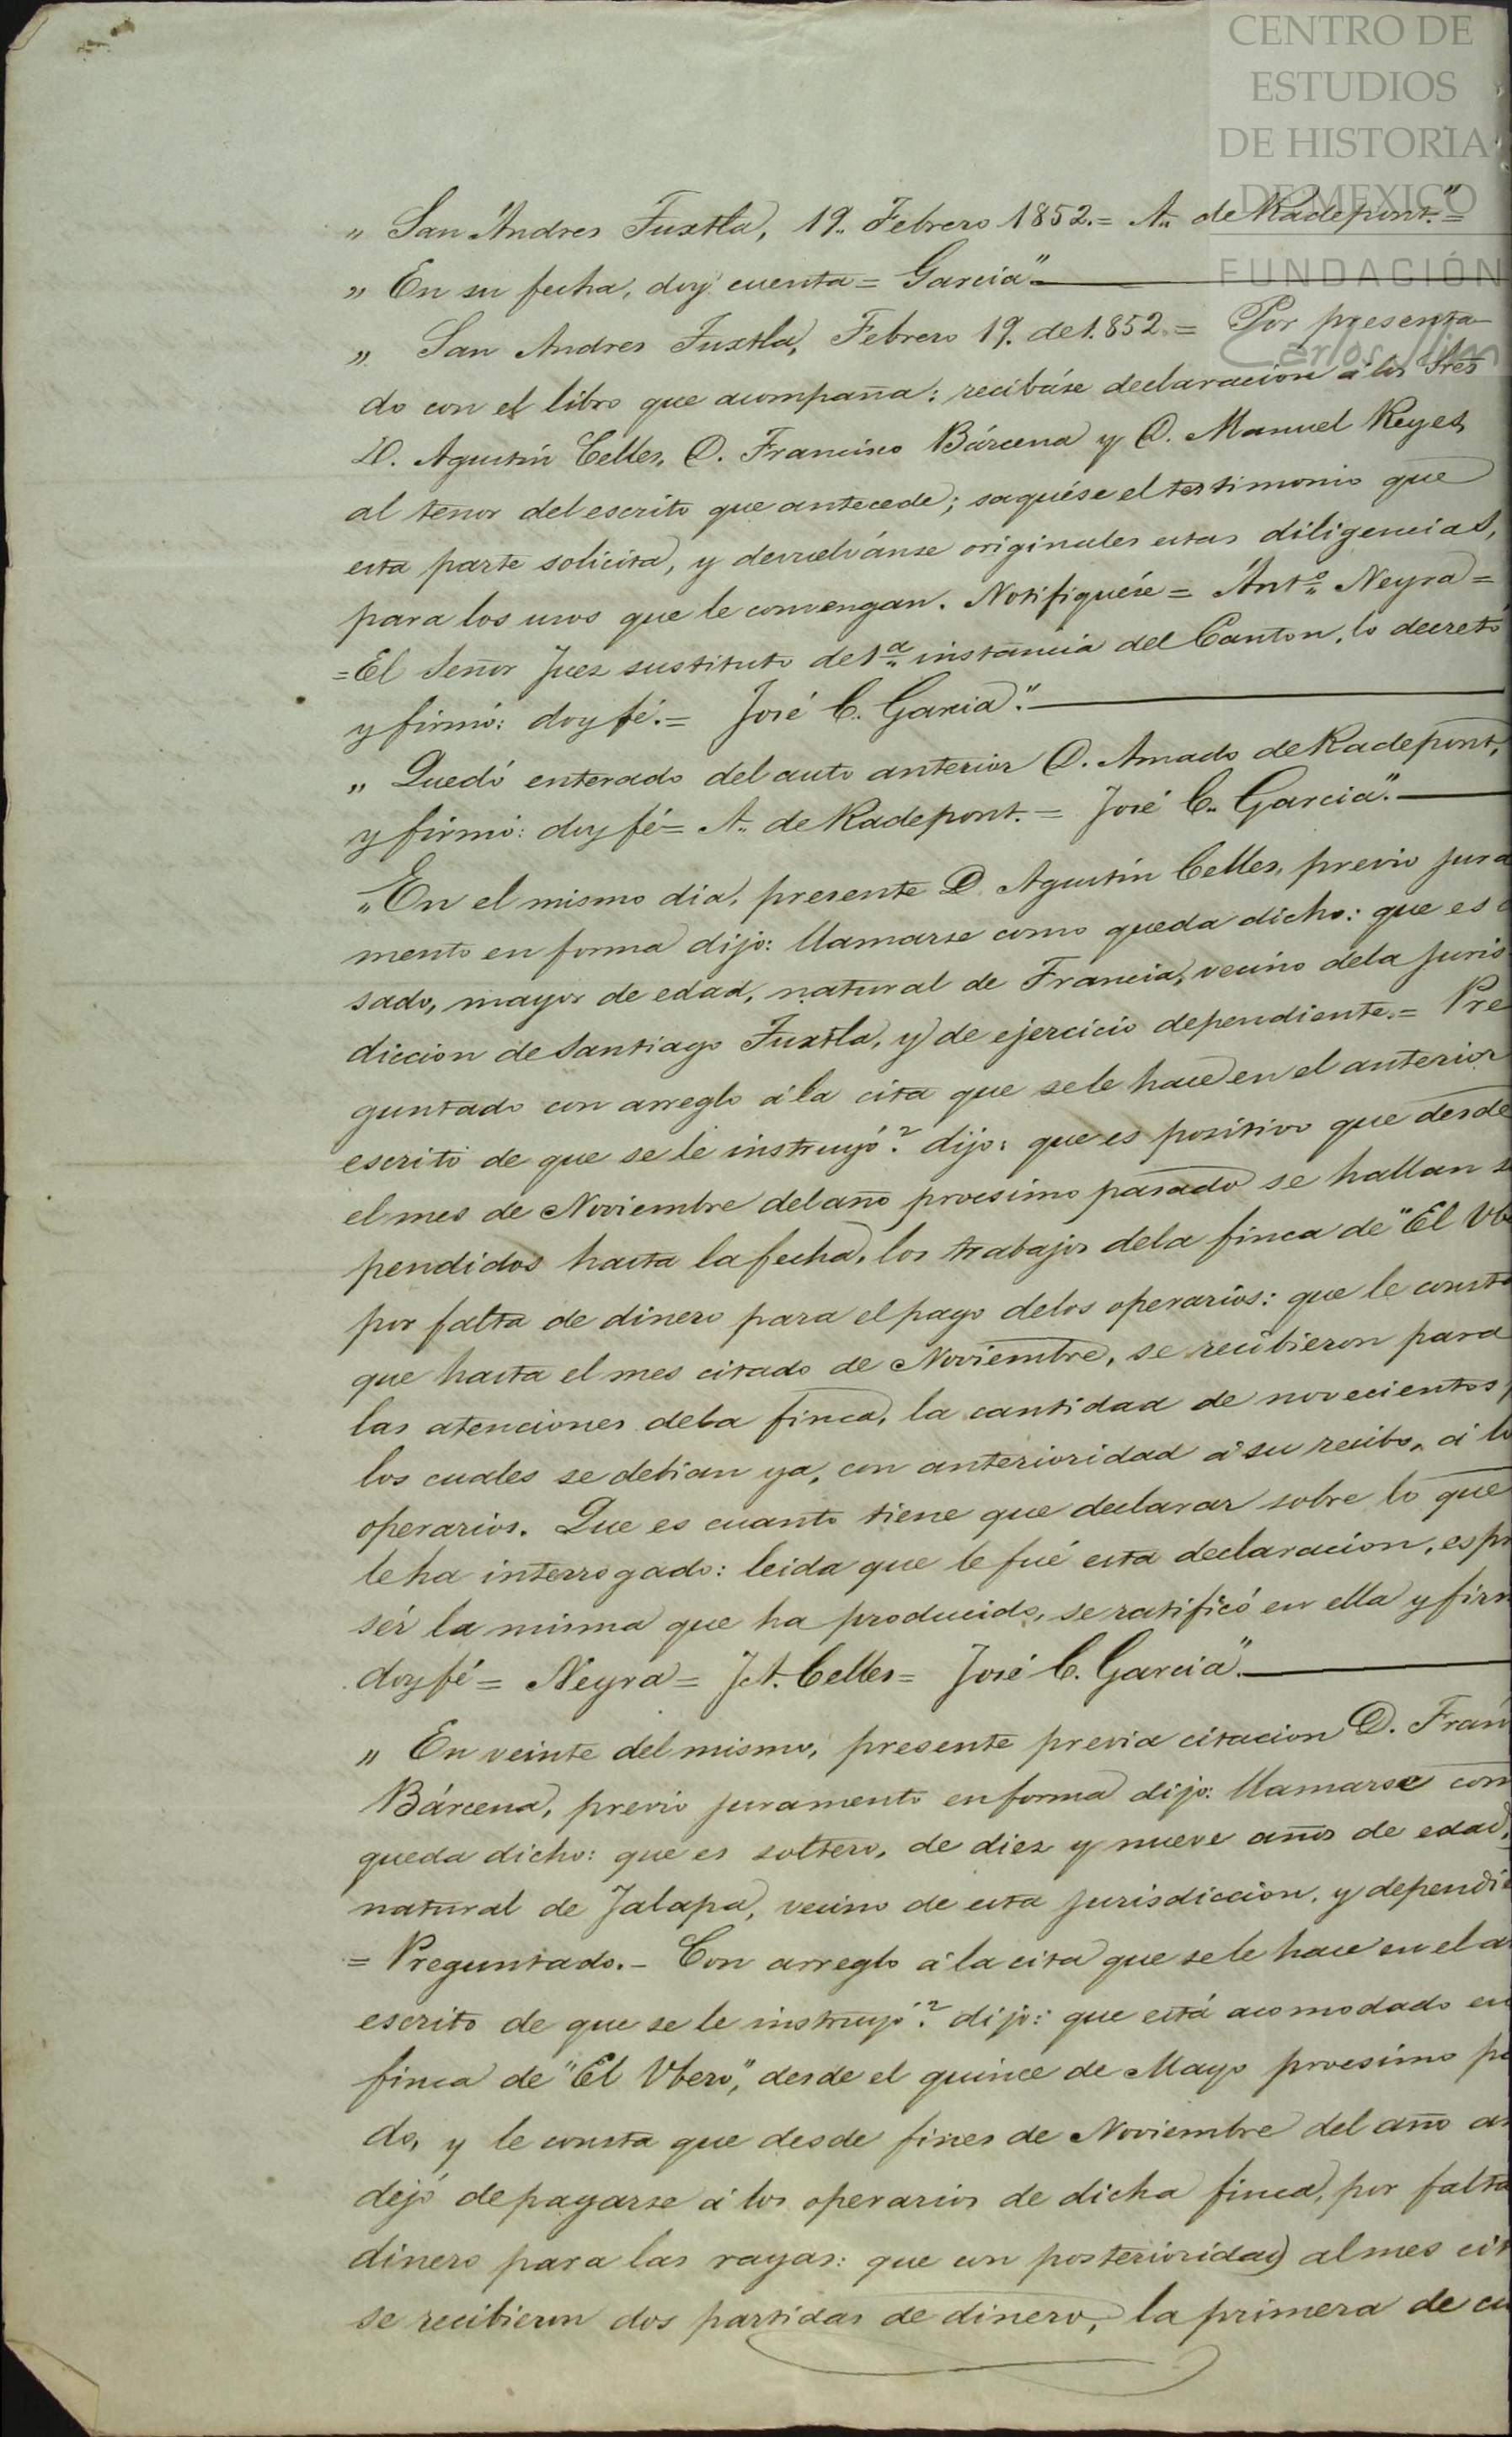 CENTRO DE
ESTUDIOS
DE HISTORIA
DE MEXICO
FUNDACIÓN
Carlos Slim
„ San Andres Tuxtla, 19„ Febrero 1852.= A„ de Radepont."=
„ En su fecha, doy cuenta = Garcia"
„ San Andres Tuxtla, Febrero 19. de 1.852.= Por presenta-
do con el libro que acompaña: recibáse declaracion á los Sres
D. Agustin Celles, D. Francisco Bárcena y D. Manuel Reyes,
al tenor del escrito que antecede; saquése el testimonio que
esta parte solicita, y devuelvánse originales estas diligencias,
para los usos que le convengan. Notifiquése = Antº„ Neyra =
=El Señor Juez sustituto de 1ª„ instancia del Canton, lo decretó
y firmó: doy fé.= José C. Garcia."
„ Quedó enterado del auto anterior D. Amado de Radepont,
y firmó: doy fé= A„ de Radepont.= José C„ Garcia".
„En el mismo dia, presente D. Agustin Celles, previo jura
mento en forma dijo: llamarse como queda dicho: que es c
sado, mayor de edad, natural de Francia, vecino dela juris-
diccion de Santiago Tuxtla, y de ejercicio dependiente.= Pre
guntado con arreglo á la cita que sele hace en el anterior
escrito de que se le instruyó? dijo: que es positivo que desde
el mes de Noviembre del año procsimo pasado se hallan s
pendidos hasta la fecha, los trabajos dela finca de "El Ube
por falta de dinero para el pago delos operarios: que le consta
que hasta el mes citado de Noviembre, se recibieron para
las atenciones dela finca, la cantidad de novecientos p
los cuales se debian ya, con anterioridad á su recibo, á lo
operarios. Que es cuanto tiene que declarar sobre lo que
le ha interrogado: leida que le fué esta declaracion, espr
sér la misma que ha producido, se ratificó en ella y firm
doy fé = Neyra = J. A. Celles = José C. Garcia".
„ En veinte del mismo, presente previa citacion D. Fran
Bárcena, previo juramento en forma dijo: llamarse com
queda dicho: que es soltero, de diez y nueve años de edad,
natural de Jalapa, vecino de esta jurisdiccion, y dependie
= Preguntado.- Con arreglo á la cita que sele hace en el a
escrito de que se le instruyó? dijo: que está acomodado en
finca de "El Ubero", desde el quince de Mayo procsimo pa
do, y le consta que desde fines de Noviembre del año an
dejó de pagarse á los operarios de dicha finca, por falta
dinero para las rayas: que con posterioridad al mes cit
se recibieron dos partidas de dinero, la primera de cu